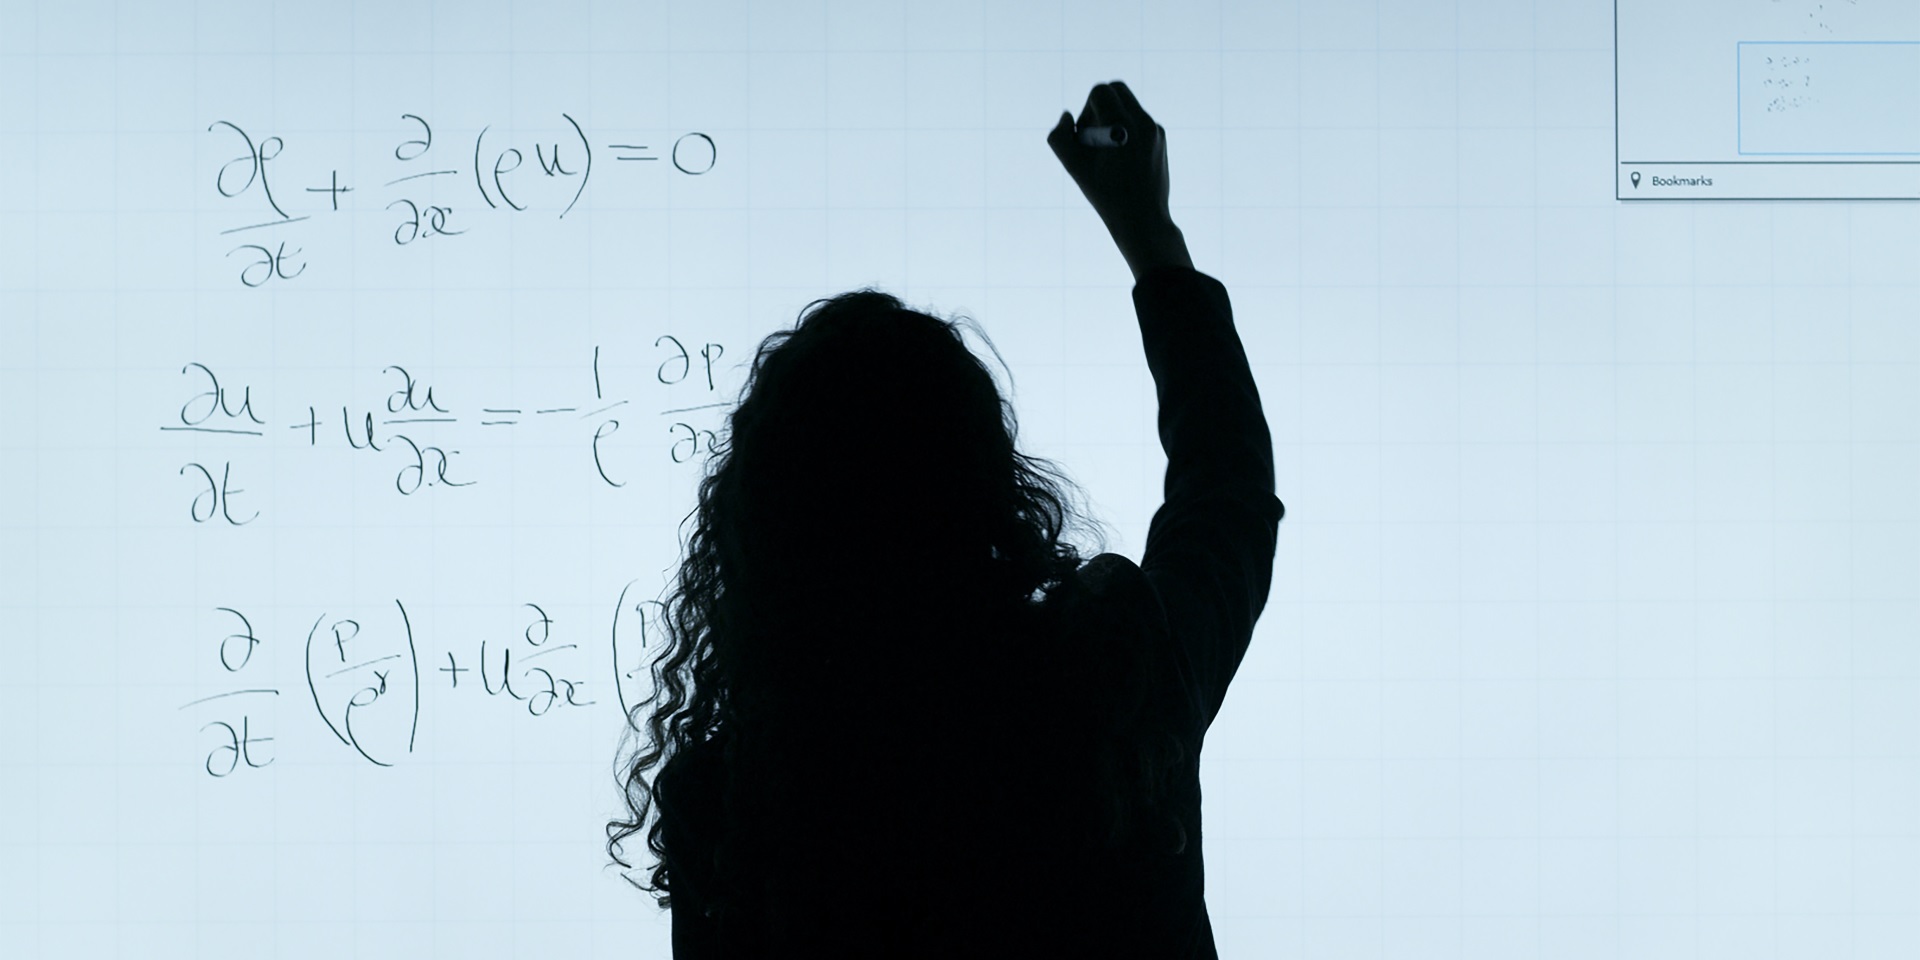 ∂ρ/∂t + ∂/∂x (ρu) = 0
∂u/∂t + u ∂u/∂x = − 1/ρ ∂p/∂x
∂/∂t (p/ρ^γ) + u ∂/∂x (p
Bookmarks